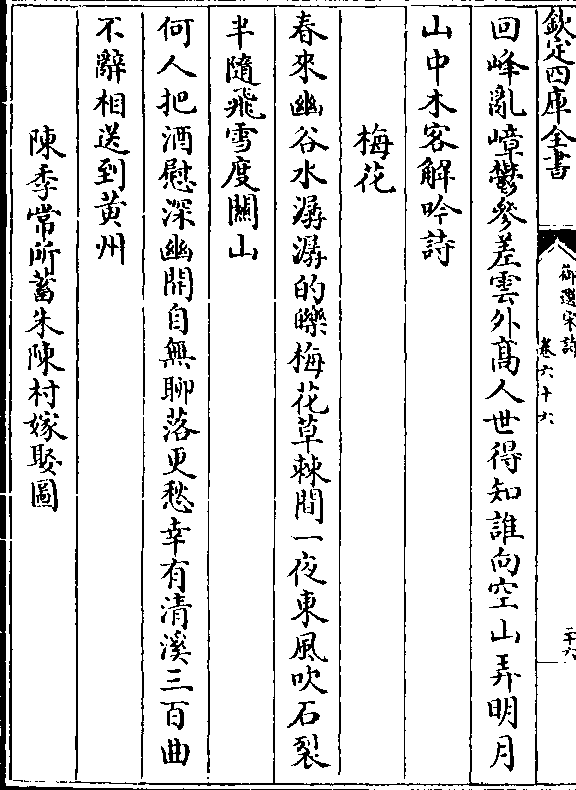 欽定四庫全書
御選宋詩
卷六十六
二十六
回峰亂嶂鬱參差雲外髙人世得知誰向空山弄明月
山中木客解吟詩
梅花
春來幽谷水潺潺的皪梅花草棘間一夜東風吹石裂
半隨飛雪度關山
何人把酒慰深幽開自無聊落更愁幸有清溪三百曲
不辭相送到黃州
陳季常所蓄朱陳村嫁娶圖